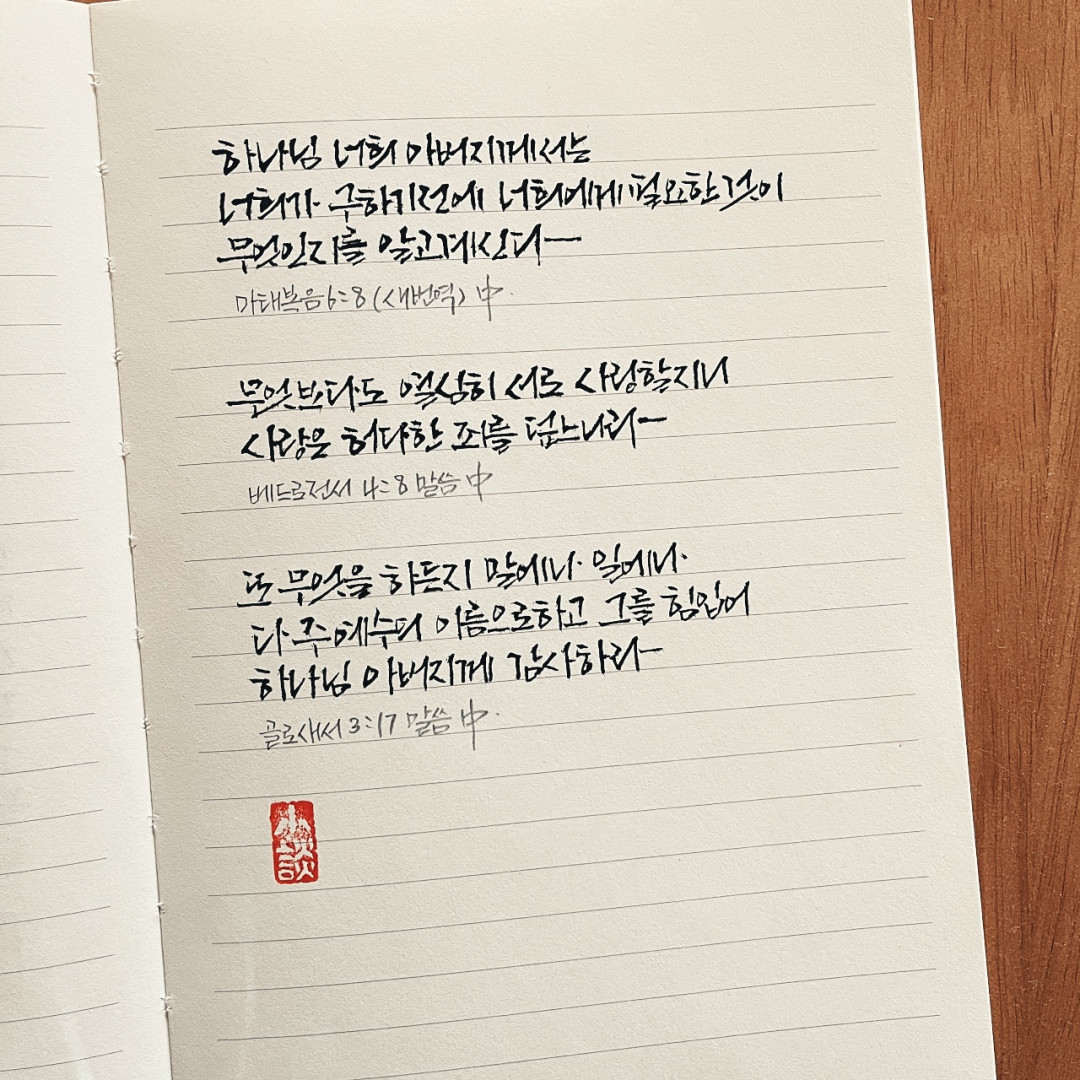 하나님 너희 아버지께서는
너희가 구하기전에 너희에게 필요한 것이
무엇인지를 알고계신다—
마태복음 6:8 (새번역) 中.
무엇보다도 열심히 서로 사랑할지니
사랑은 허다한 죄를 덮느니라—
베드로전서 4:8 말씀 中
또 무엇을 하든지 말에나 일에나
다 주 예수의 이름으로하고 그를 힘입어
하나님 아버지께 감사하라—
골로새서 3:17 말씀 中.
小談